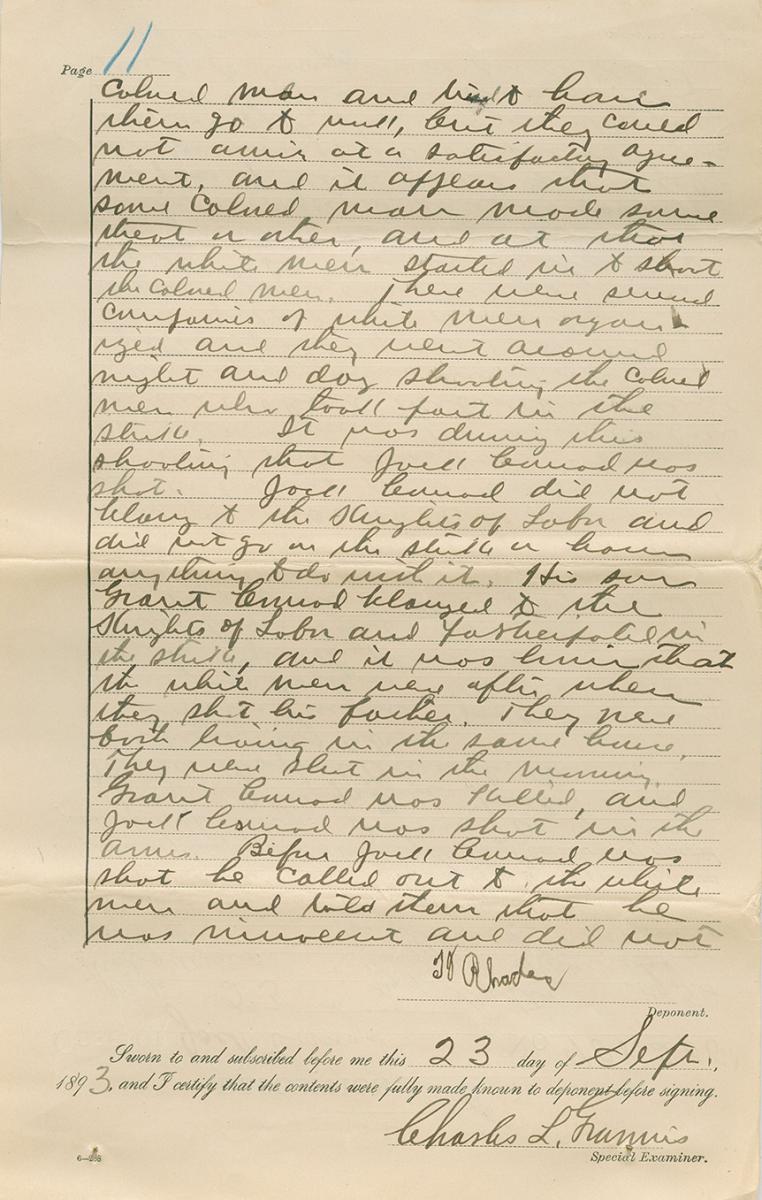 Page 11
colored men and tried to have
them go to work, but they could
not arrive at a satisfactory agree-
ment, and it appears that
some colored man made some
threat or other, and at that
the white men started in to shoot
the colored men. There were several
companies of white men organ
ized and they went around
night and day shooting the colored
men who took part in the
strike. It was during this
shooting that Jack Conrad was
shot. Jack Conrad did not
belong to the Knights of Labor and
did not go on the strike or have
anything to do with it. His son
Grant Conrad belonged to the
Knights of Labor and participated in
the strike, and it was him that
the white men were after when
they shot his father. They were
both living in the same house.
They were shot in the morning.
Grant Conrad was killed, and
Jack Conrad was shot in the
arms. Before Jack Conrad was
shot he called out to the white
men and told them that he
was innocent and did not
Rhodes
Deponent.
Sworn to and subscribed before me this 23 day of Sept.,
1893, and I certify that the contents were fully made known to deponent before signing.
Charles L. Grannis
Special Examiner.